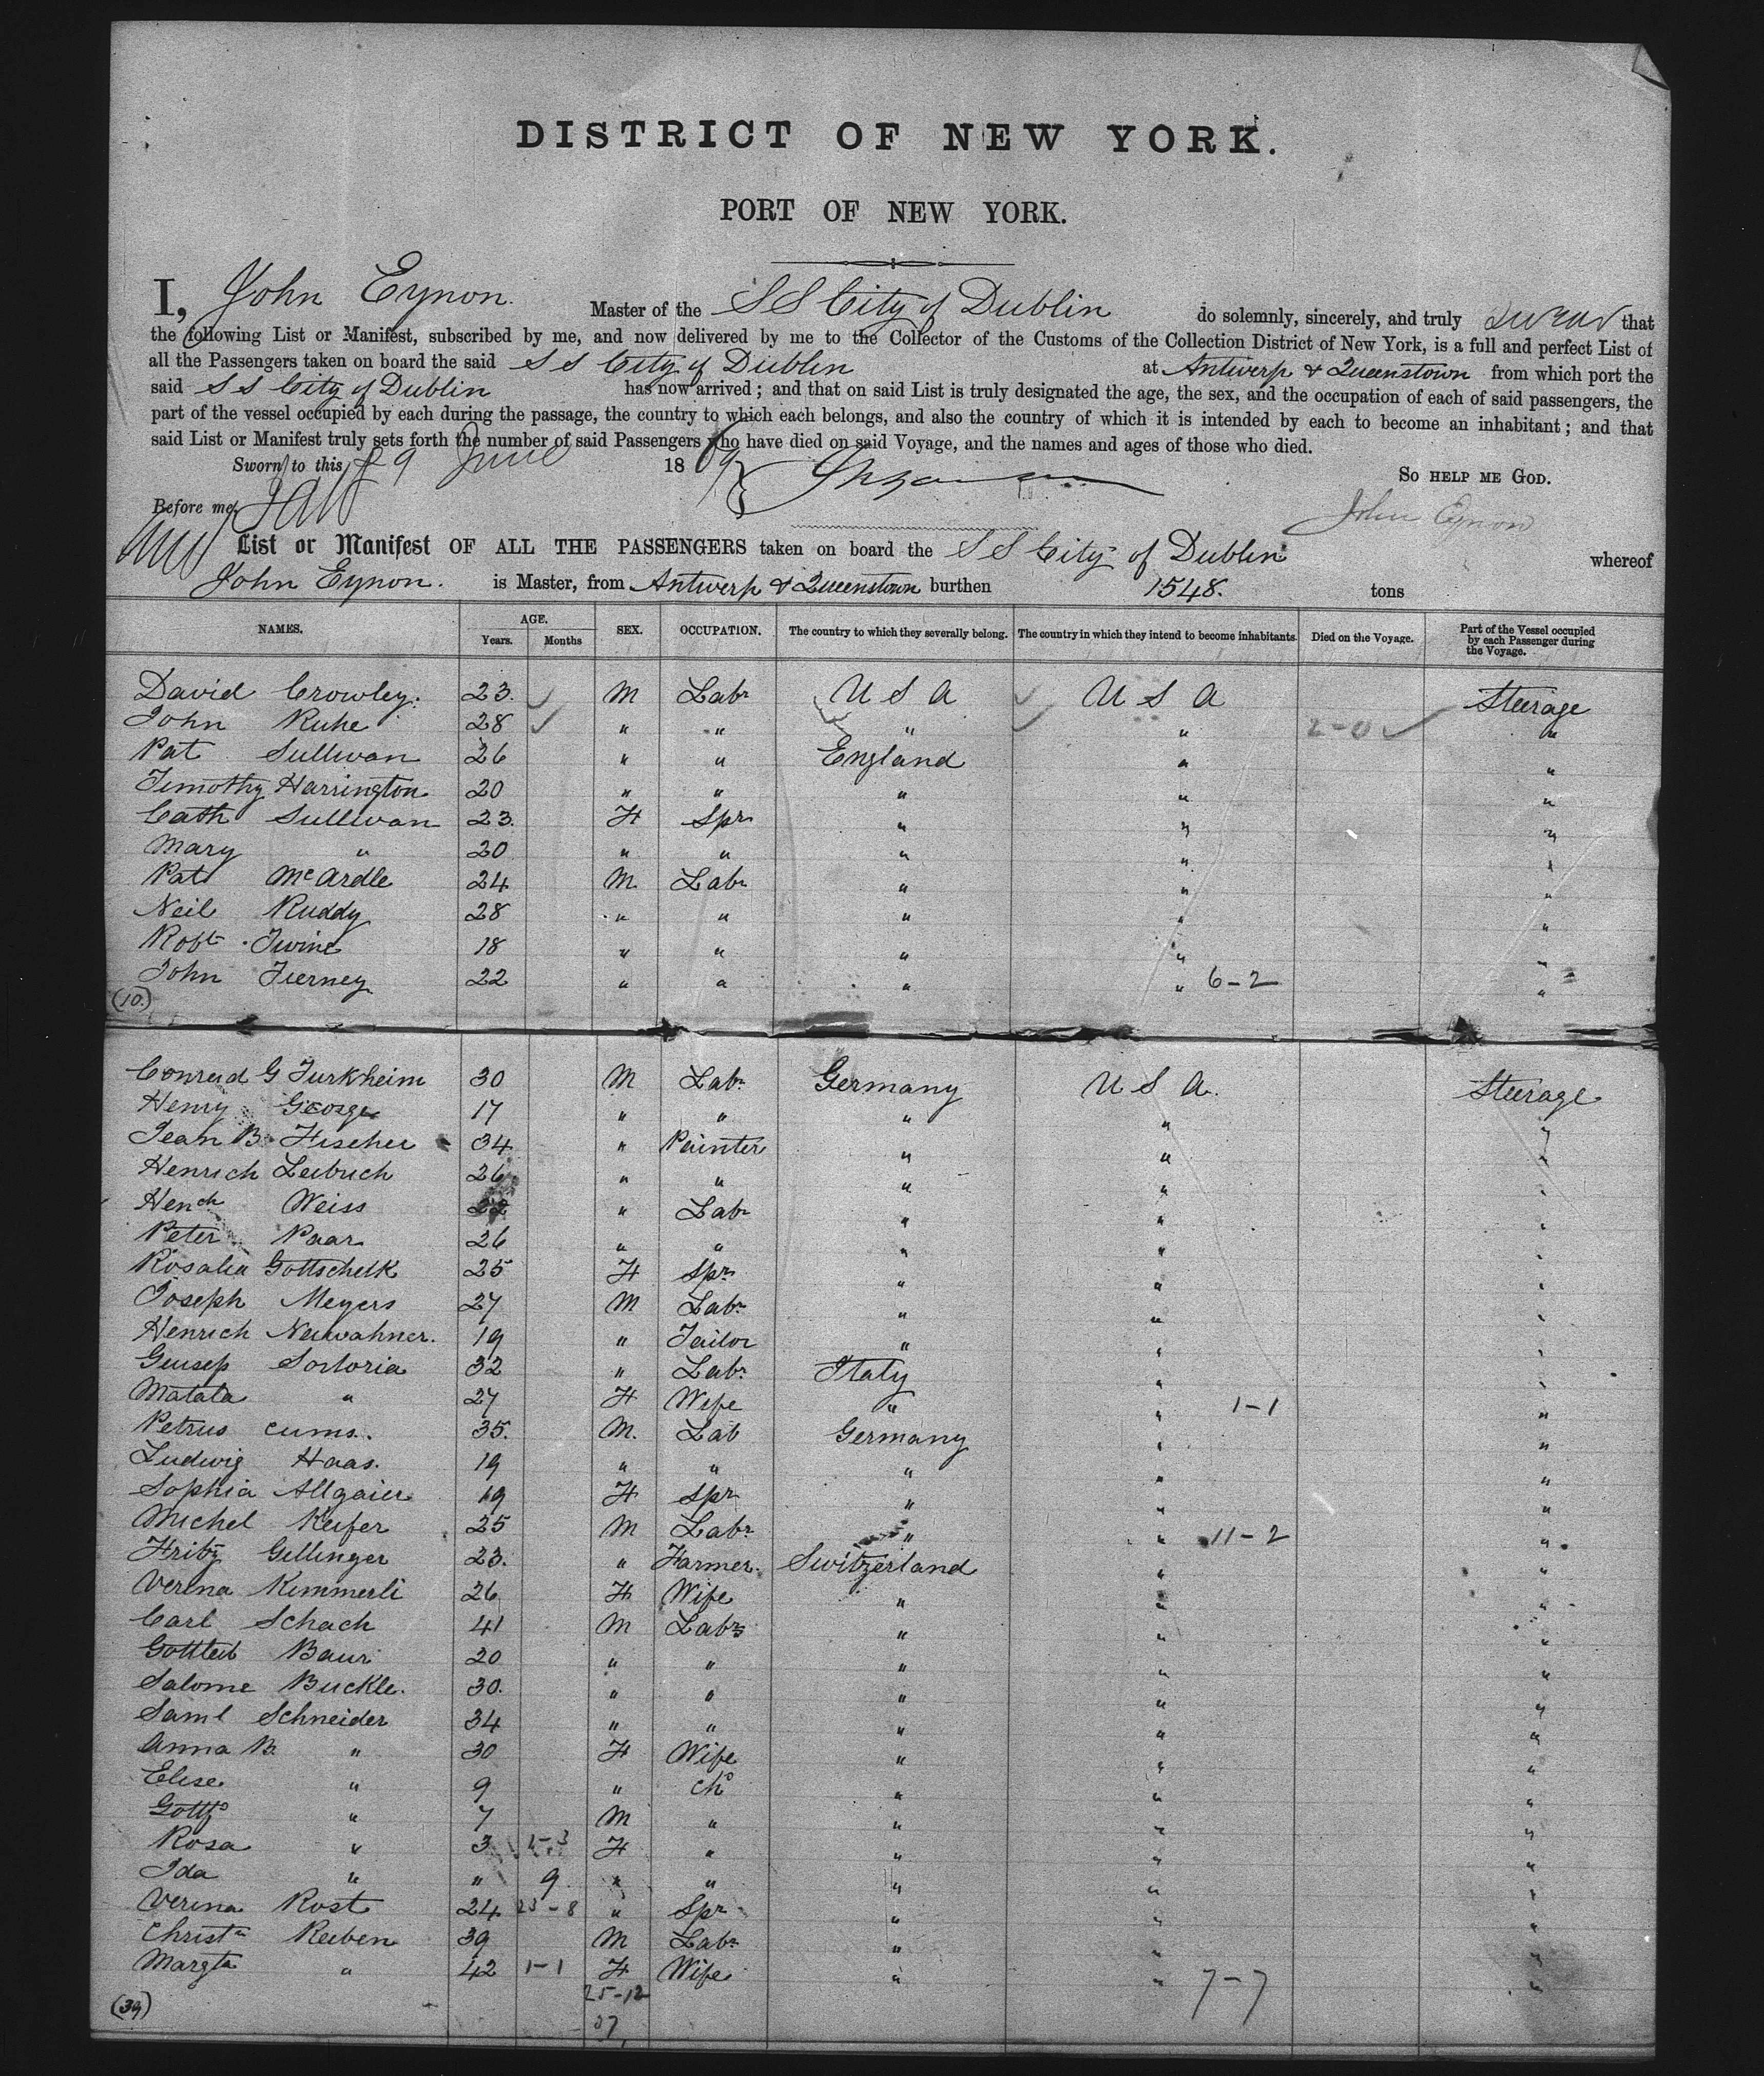 DISTRICT OF NEW YORK.
PORT OF NEW YORK.
I, John Eynon. Master of the S S City of Dublin do solemnly, sincerely, and truly swear that
the following List or Manifest, subscribed by me, and now delivered by me to the Collector of the Customs of the Collection District of New York, is a full and perfect List of
all the Passengers taken on board the said S S City of Dublin at Antwerp & Queenstown from which port the
said S S City of Dublin has now arrived; and that on said List is truly designated the age, the sex, and the occupation of each of said passengers, the
part of the vessel occupied by each during the passage, the country to which each belongs, and also the country of which it is intended by each to become an inhabitant; and that
said List or Manifest truly sets forth the number of said Passengers who have died on said Voyage, and the names and ages of those who died.
Sworn to this 9 June 1869 So help me God.
Before me, John Eynon
List or Manifest OF ALL THE PASSENGERS taken on board the S S City of Dublin whereof
John Eynon. is Master, from Antwerp & Queenstown burthen 1548. tons
NAMES. AGE. Years. Months SEX. OCCUPATION. The country to which they severally belong. The country in which they intend to become inhabitants. Died on the Voyage. Part of the Vessel occupied by each Passenger during the Voyage.
David Crowley. 23. M Labr U S A U S A Steerage
John Ruhe 28 " " " " 2-0 "
Pat Sullivan 26 " " England " "
Timothy Harrington 20 " " " " "
Cath Sullivan 23. F Spr " " "
Mary " 20 " " " " "
Pat McArdle 24 M Labr " " "
Neil Ruddy 28 " " " " "
Robt Irvine 18 " " " " "
John Tierney 22 " " " " 6-2 "
(10.)
Conrad G Turkheim 30 M Labr Germany U S A. Steerage
Henry George 17 " " " " "
Jean B. Fischer 34 " Painter " " "
Henrich Leibrich 26 " " " " "
Hench Weiss 22 " Labr " " "
Peter Paar 26 " " " " "
Rosalia Gottschelk 25 F Spr " " "
Joseph Meyers 27 M Labr " " "
Henrich Neuvahner. 19 " Tailor " " "
Geusep Sortoria 32 " Labr Italy " "
Matata " 27 F Wife " " 1-1 "
Petrus Cums. 35. M. Lab Germany " "
Ludwig Haas. 19 " " " " "
Sophia Allgaier 19 F Spr " " "
Michel Keifer 25 M Labr " " 11-2 "
Fritz Gellinger 23. " Farmer. Switzerland " "
Verena Kimmerli 26 F Wife " " "
Carl Schach 41 M Labr " " "
Gottleib Baur 20 " " " " "
Salome Buckle. 30. " " " " "
Saml Schneider 34 " " " " "
Anna B. " 30 F Wife " " "
Elise " 9 " ch " " "
" 7 M " " " "
Rosa " 3 F " " " "
Ida " " 9 " " " " "
Verena Rost 24 23-8 " Spr " " "
Christn Reiben 39 M Labr " " "
Margta " 42 1-1 F Wife " " 7-7 "
(39) 25-12
37